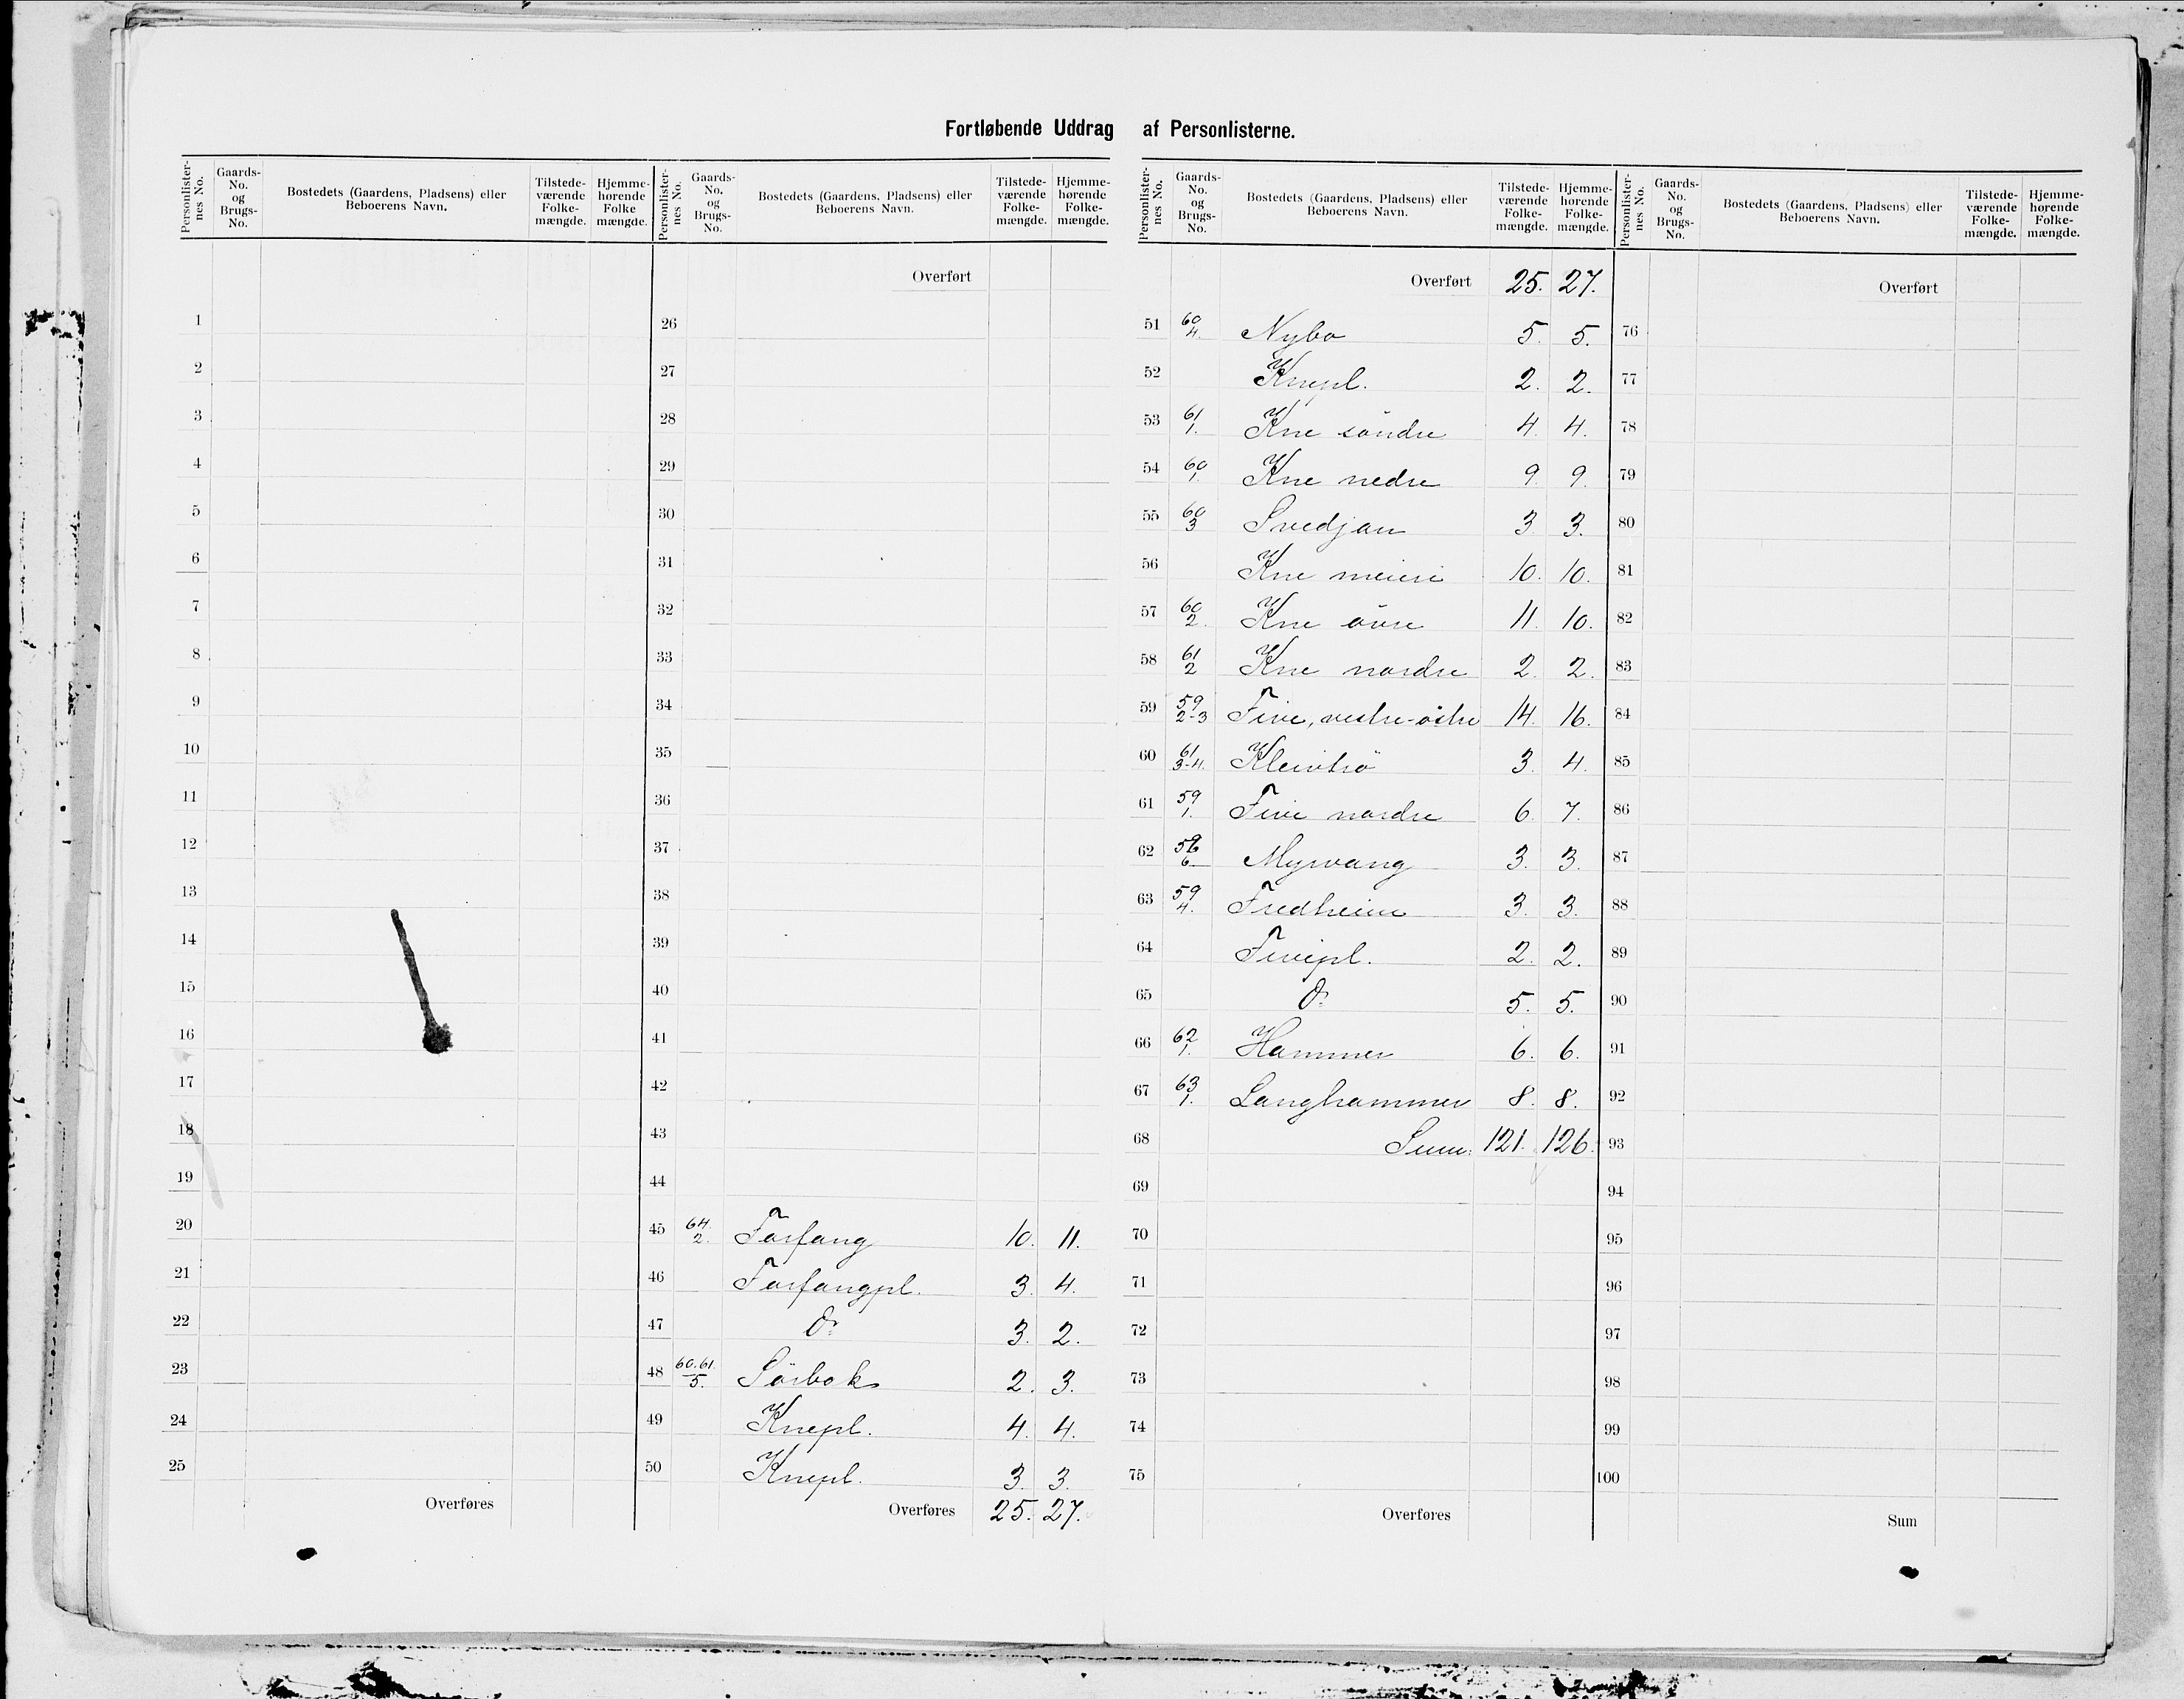 Fortløbende Uddrag af Personlisterne.
Personlister-nes No. Gaards-No. og Brugs-No. Bostedets (Gaardens, Pladsens) eller Beboerens Navn. Tilstede-værende Folke-mængde. Hjemme-hørende Folke mængde.
1
2
3
4
5
6
7
8
9
10
11
12
13
14
15
16
17
18
19
20
21
22
23
24
25
Overføres
Personlister-nes No. Gaards-No. og Brugs-No. Bostedets (Gaardens, Pladsens) eller Beboerens Navn. Tilstede-værende Folke-mængde. Hjemme-hørende Folke-mængde.
Overført
26
27
28
29
30
31
32
33
34
35
36
37
38
39
40
41
42
43
44
45 64/2. Forfang 10. 11.
46 Forfangpl. 3. 4.
47 Do 3. 2.
48 60.61./5. Sörbok 2. 3.
49 Knepl. 4. 4.
50 Knepl. 3. 3.
Overføres 25. 27.
Personlister-nes No. Gaards-No. og Brugs-No. Bostedets (Gaardens, Pladsens) eller Beboerens Navn. Tilstede-værende Folke-mængde. Hjemme-hørende Folke-mængde.
Overført 25. 27.
51 60/4. Nybo 5. 5.
52 Knepl. 2. 2.
53 61/1. Kne söndre 4. 4.
54 60/1. Kne nedre 9. 9.
55 60/3 Svedjan 3. 3.
56 Kne meieri 10. 10.
57 60/2. Kne övre 11. 10.
58 61/2 Kne nordre 2. 2.
59 59/2-3 Five, vestre-östre 14. 16.
60 61/3-4. Kleivhö 3. 4.
61 59/1. Five nordre 6. 7.
62 6 Myrvang 3. 3.
63 59/4. Fredheim 3. 3.
64 Fivepl. 2. 2.
65 Do 5. 5.
66 62/1. Hammer 6. 6.
67 63/1. Langhammer 8. 8.
68 Sum: 121. 126.
69
70
71
72
73
74
75
Overføres
Personlister-nes No. Gaards-No. og Brugs-No. Bostedets (Gaardens, Pladsens) eller Beboerens Navn. Tilstede-værende Folke-mængde. Hjemme-hørende Folke-mængde.
Overført
76
77
78
79
80
81
82
83
84
85
86
87
88
89
90
91
92
93
94
95
96
97
98
99
100
Sum